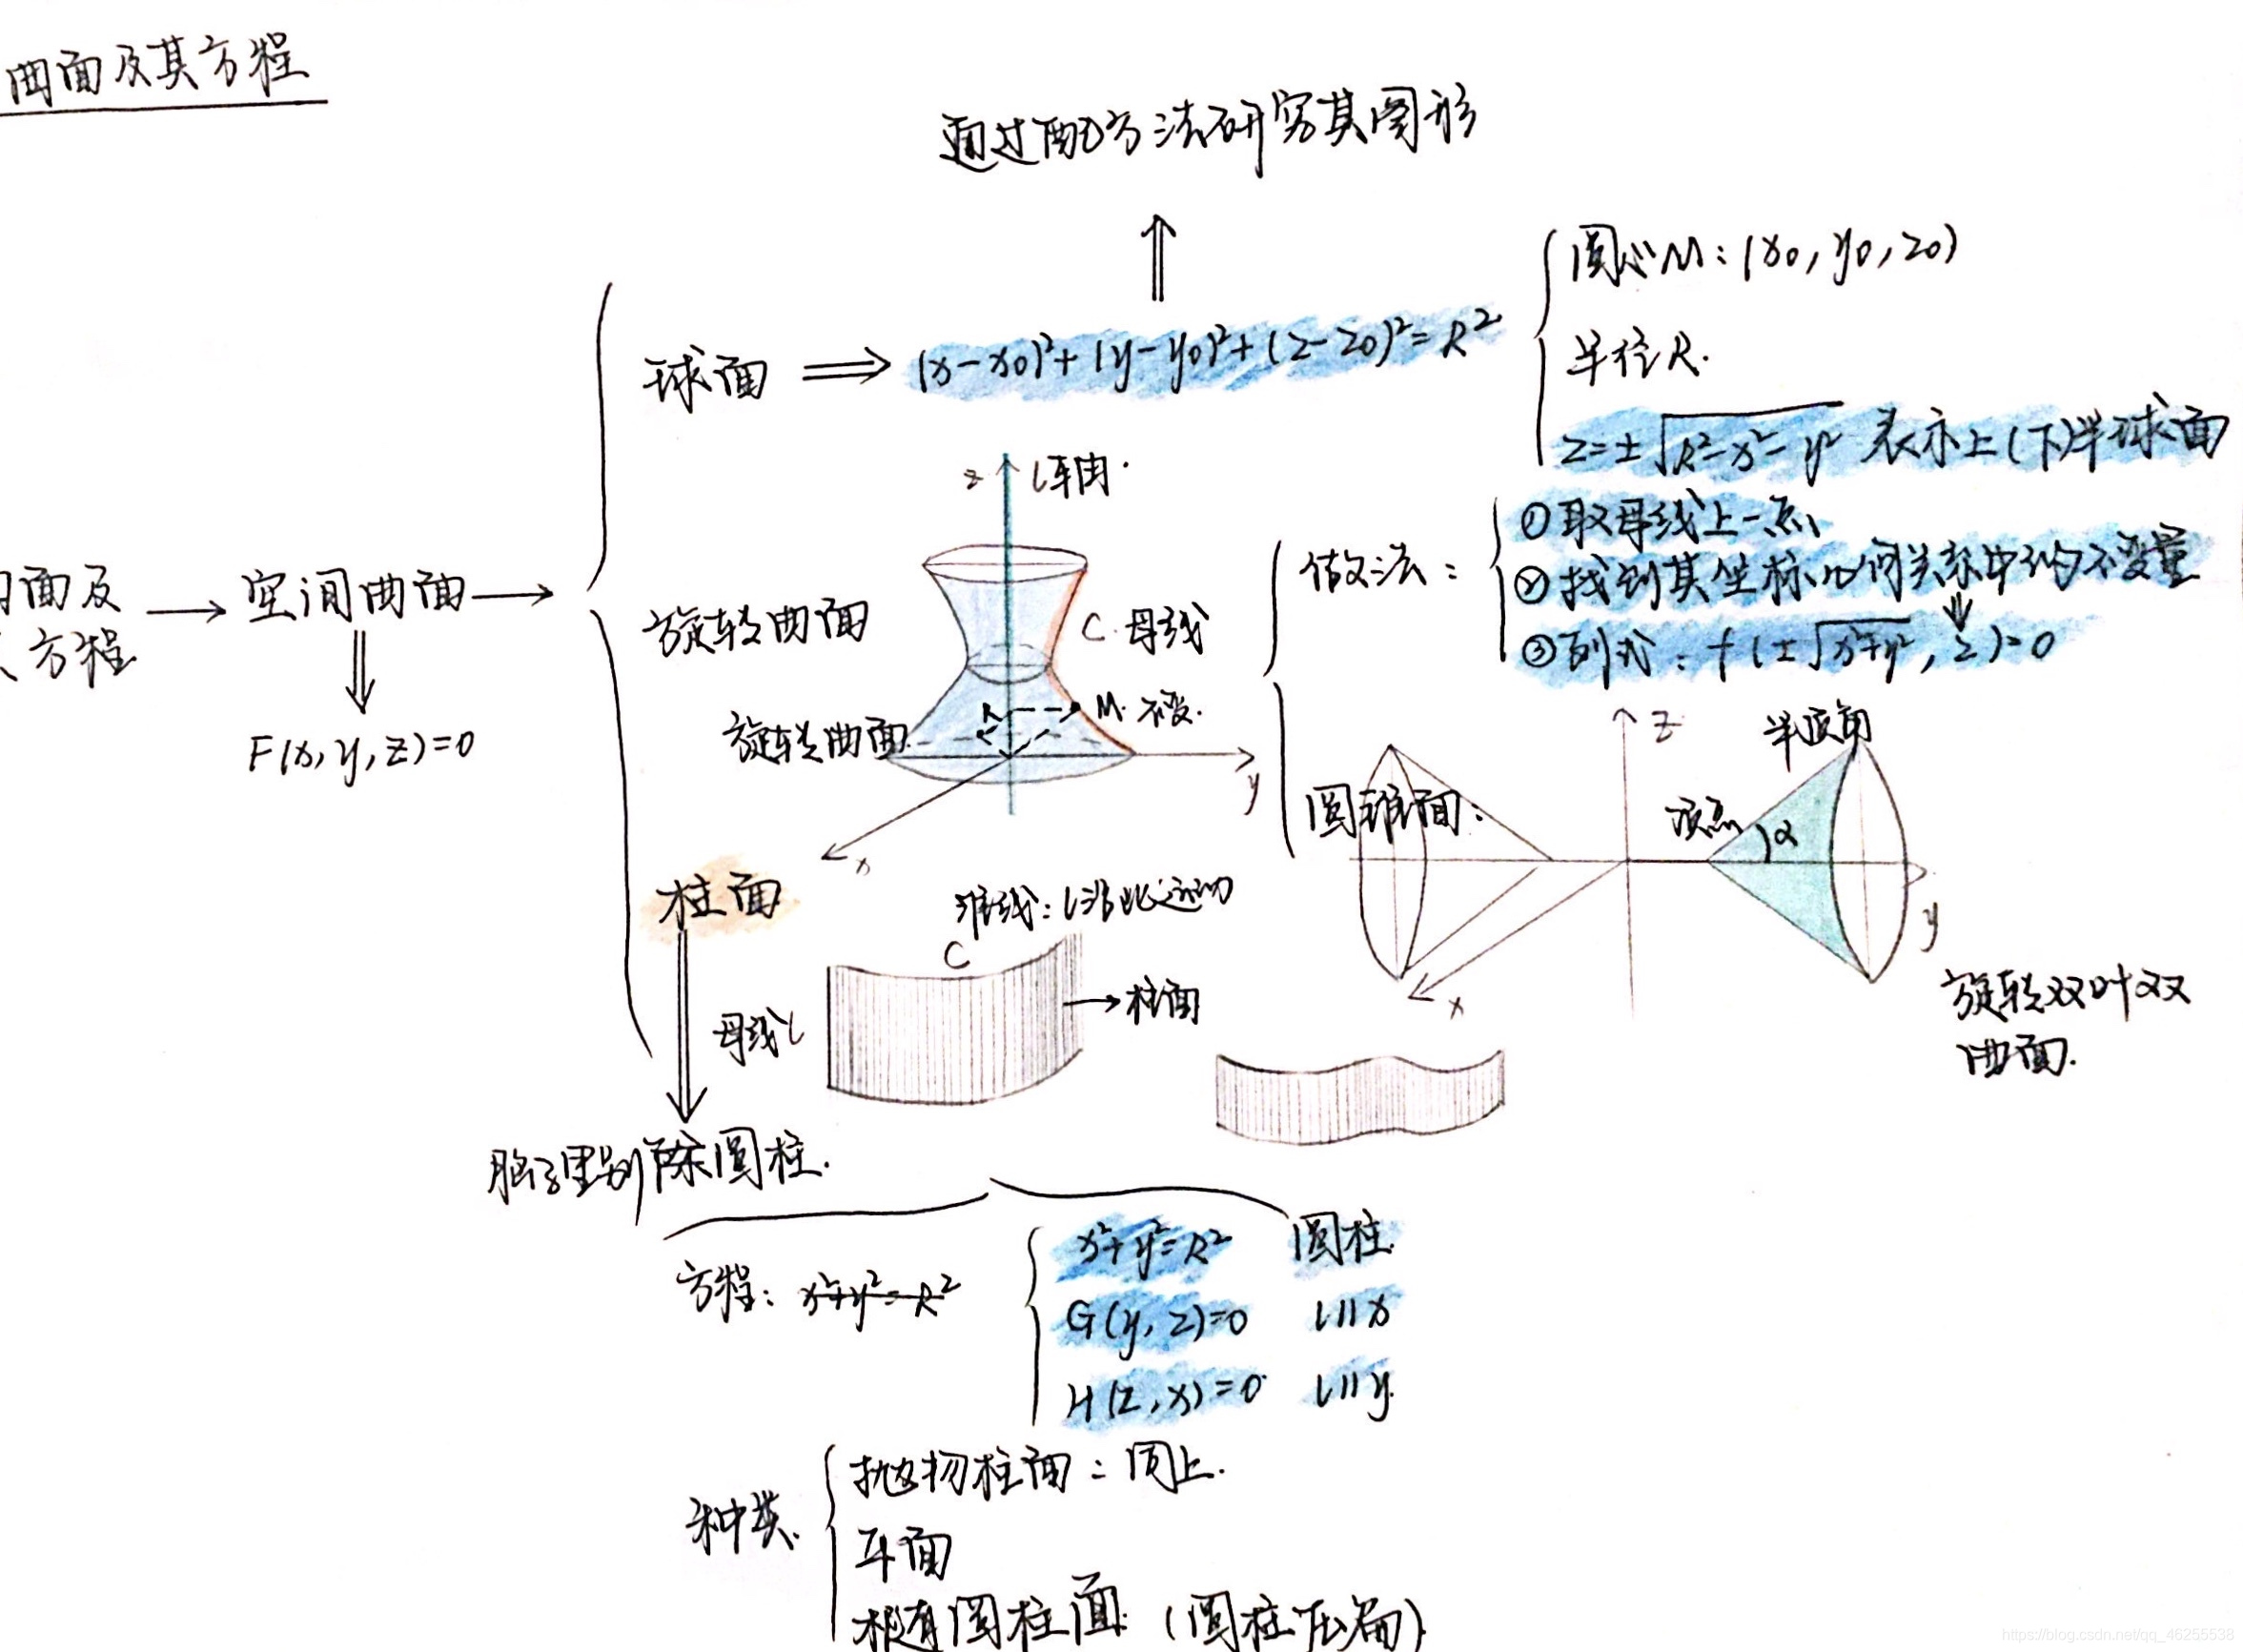 曲面及其方程
通过配方法研究其图形
圆心M：(x0, y0, z0)
半径R.
z=±√R²-x²-y² 表示上(下)半球面
球面 ⇒ (x-x0)²+(y-y0)²+(z-z0)²=R²
z l轴.
做法：
①取母线上一点
②找到其坐标几何关系中的不变量
③列式：f(±√x²+y², z)=0
面及
方程
→ 空间曲面 →
F(x, y, z)=0
旋转曲面
C. 母线
M. 不变.
R
旋转曲面.
y
x
圆锥面：
z
半顶角
顶点
α
y
x
旋转双叶双
曲面.
柱面
准线：l沿此运动
C
母线l
→柱面
脑子里别除圆柱.
方程：x²+y²=R²
x²+y²=R² 圆柱.
G(y, z)=0 l∥x
H(z, x)=0 l∥y.
种类.
抛物柱面：同上.
平面
圆柱面. (圆柱压扁)
https://blog.csdn.net/qq_46255538